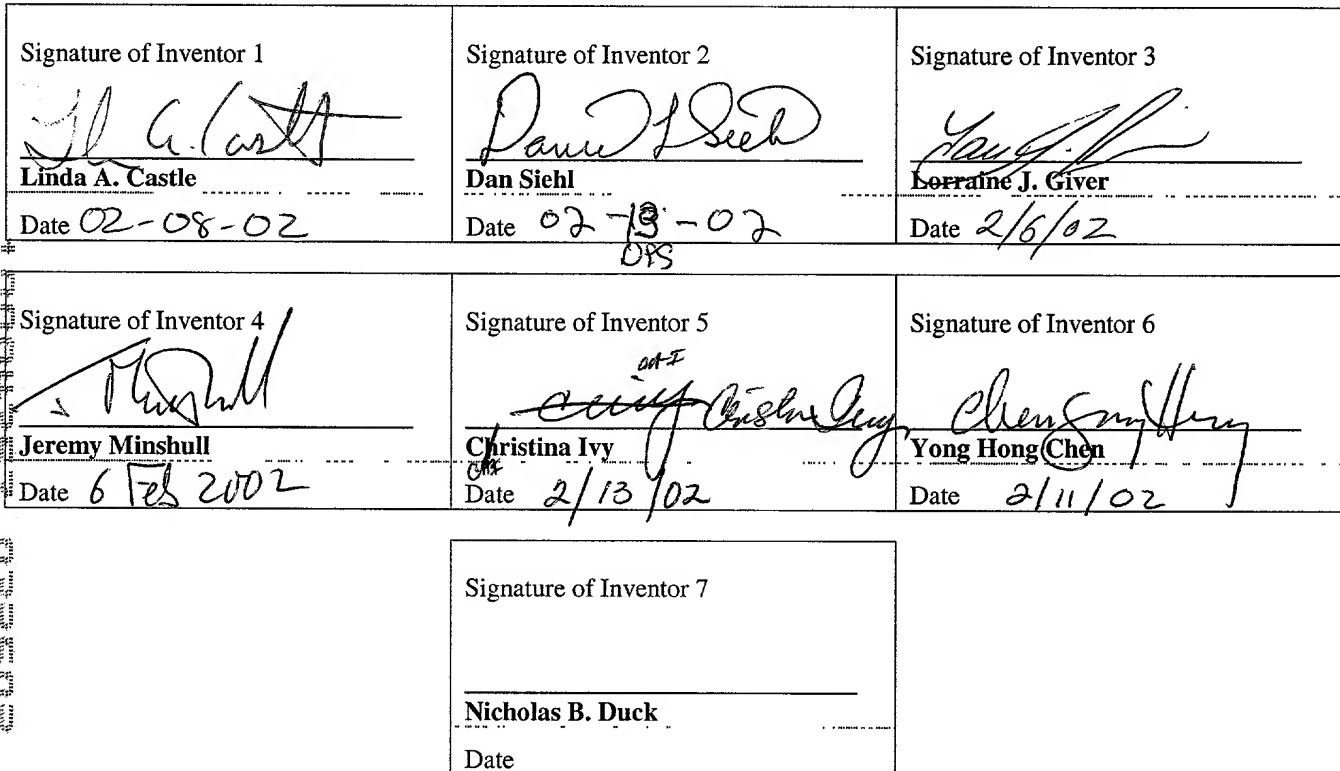 Signature of Inventor 1
Signature of Inventor 2
Signature of Inventor 3
L A. Castle
Daniel L Siehl
Linda A. Castle
Dan Siehl
Lorraine J. Giver
Date 02-08-02
Date 02-13-02
Date 2/6/02
DPS
Signature of Inventor 4
Signature of Inventor 5
Signature of Inventor 6
JMinshull
Christina Ivy
Chen Yong Hong
Jeremy Minshull
Christina Ivy
Yong Hong Chen
Date 6 Feb 2002
Date 2/13/02
Date 2/11/02
Signature of Inventor 7
Nicholas B. Duck
Date